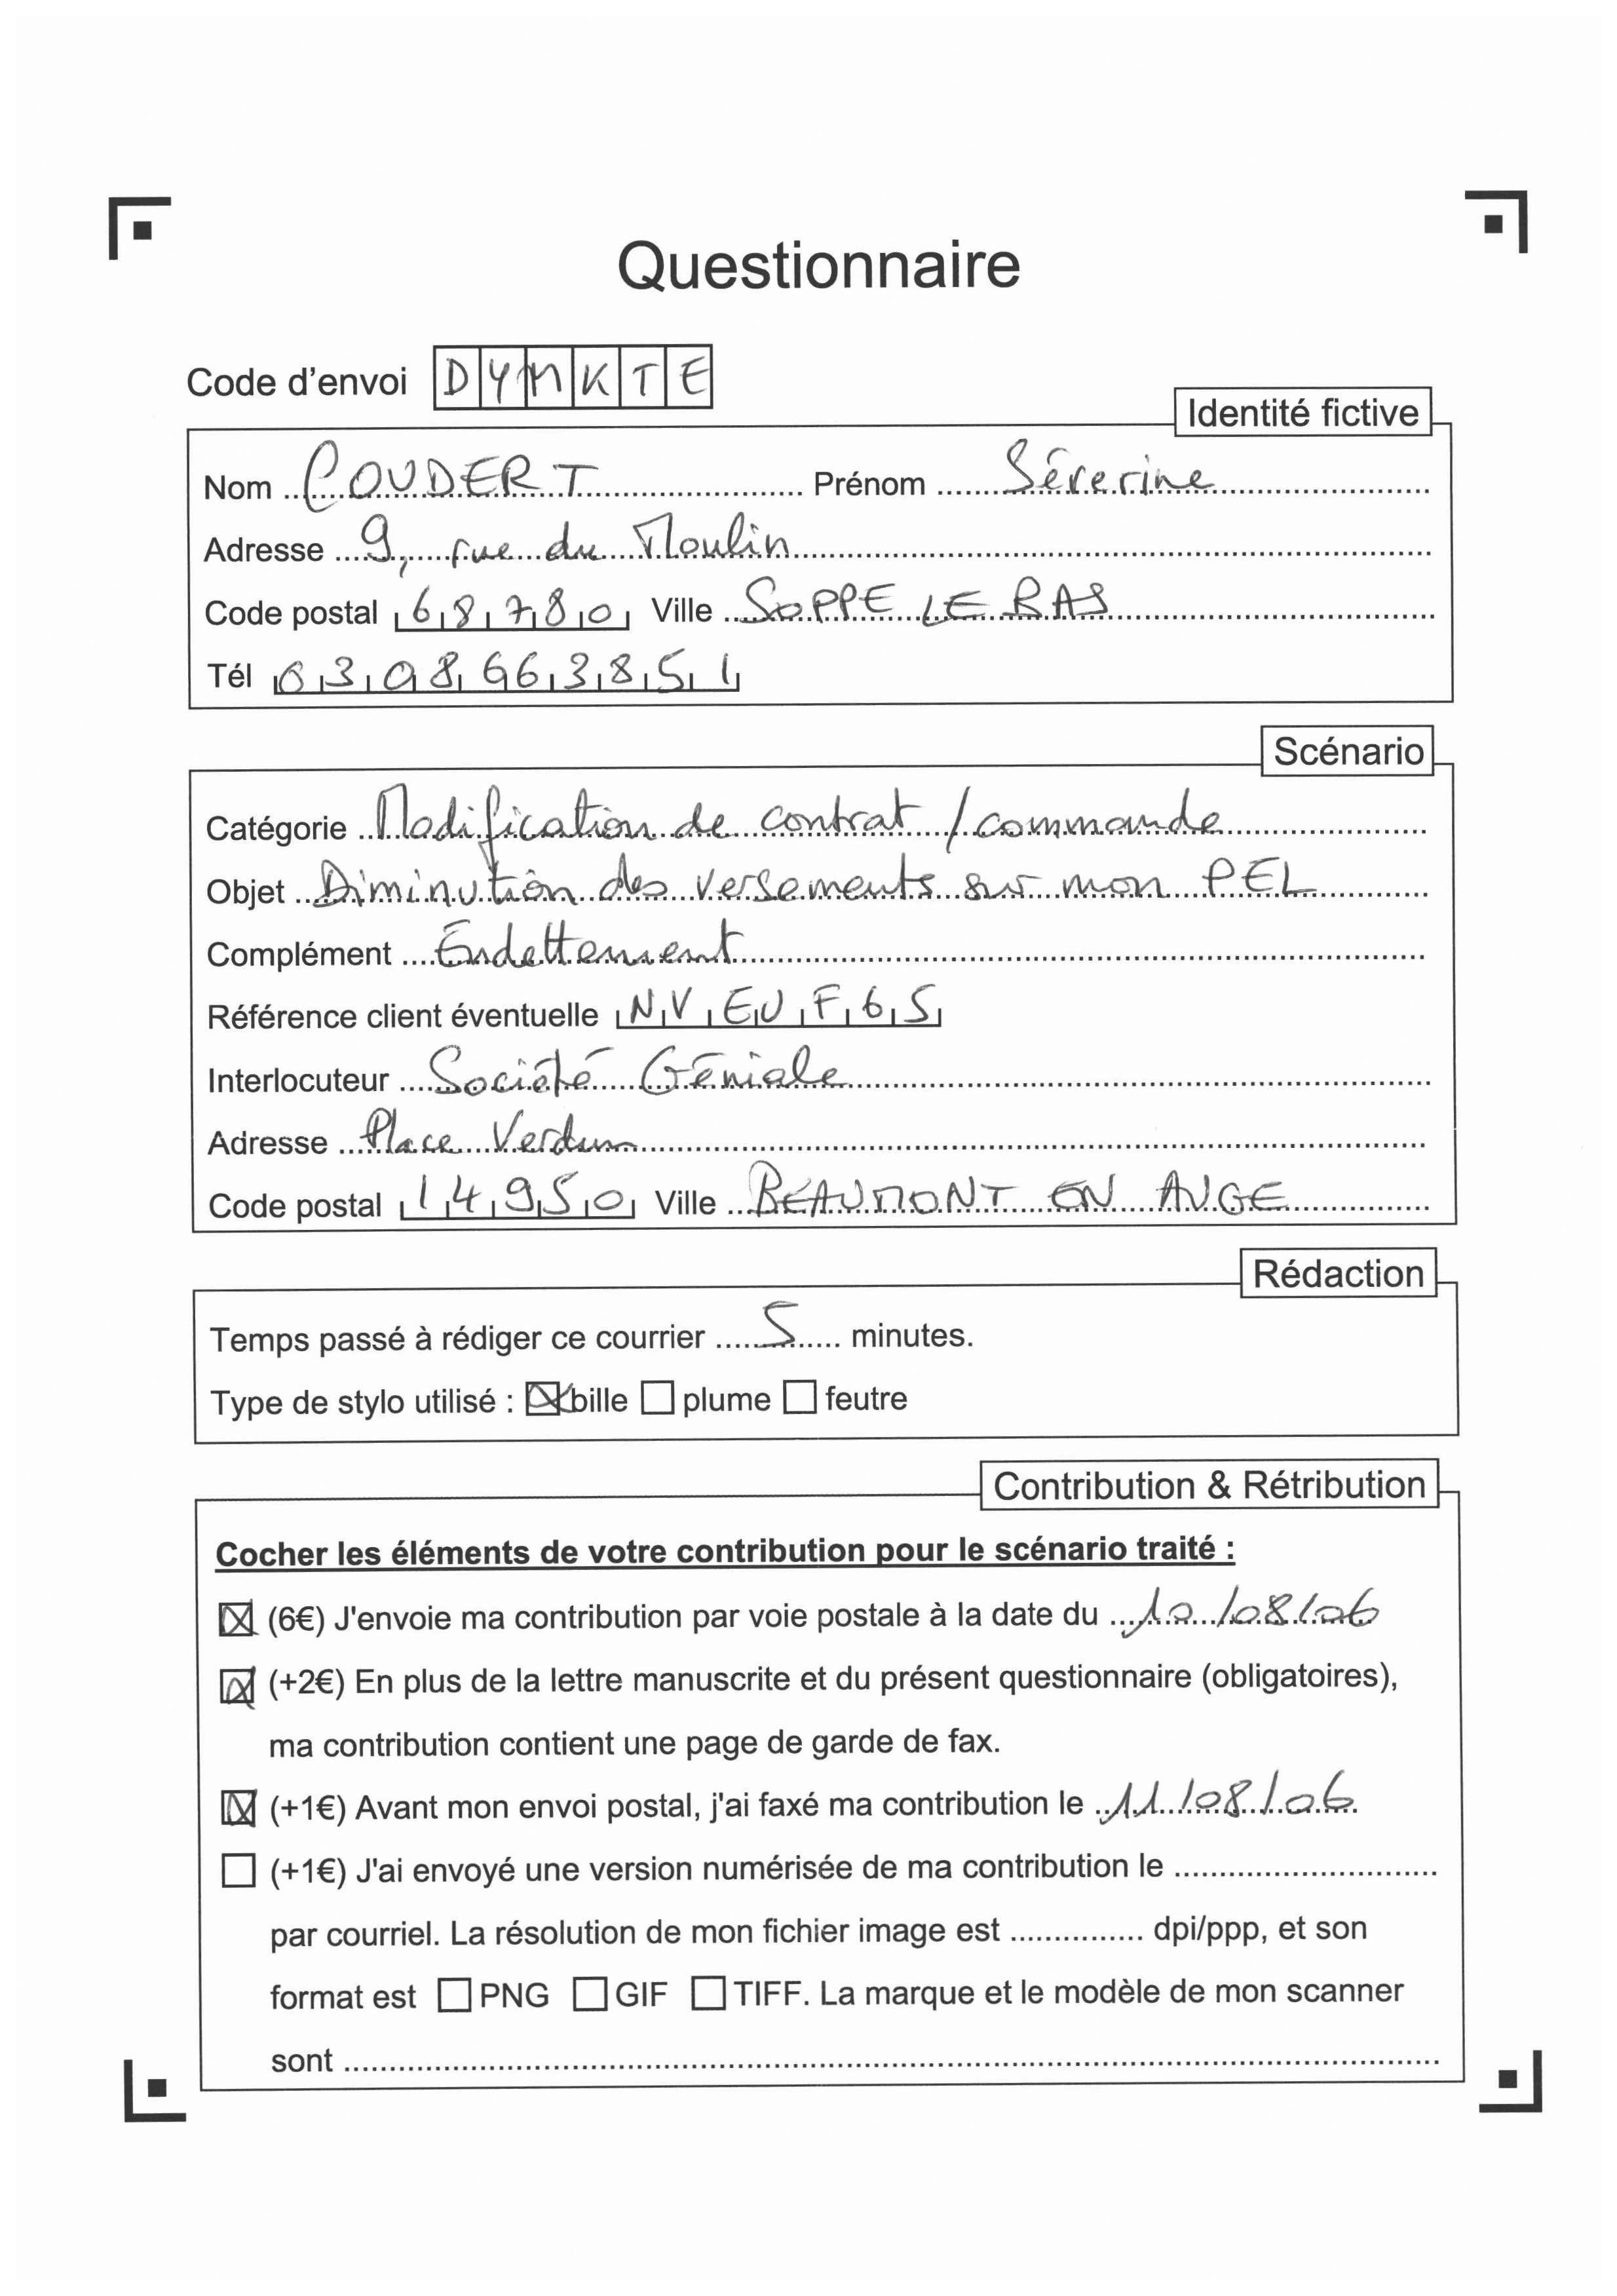 Questionnaire
Code d'envoi DYMKTE
Identité fictive
Nom COUDERT Prénom Séverine
Adresse 9, rue du Moulin
Code postal 68780 Ville SOPPE LE BAS
Tél 0308663851
Scénario
Catégorie Modification de contrat / commande
Objet Diminution des versements sur mon PEL
Complément Endettement
Référence client éventuelle NVEUF65
Interlocuteur Société Géniale
Adresse Place Verdun
Code postal 14950 Ville BEAUMONT EN AUGE
Rédaction
Temps passé à rédiger ce courrier 5 minutes.
Type de stylo utilisé : bille plume feutre
Contribution & Rétribution
Cocher les éléments de votre contribution pour le scénario traité :
(6€) J'envoie ma contribution par voie postale à la date du 10/08/06
(+2€) En plus de la lettre manuscrite et du présent questionnaire (obligatoires),
ma contribution contient une page de garde de fax.
(+1€) Avant mon envoi postal, j'ai faxé ma contribution le 11/08/06
(+1€) J'ai envoyé une version numérisée de ma contribution le
par courriel. La résolution de mon fichier image est dpi/ppp, et son
format est PNG GIF TIFF. La marque et le modèle de mon scanner
sont